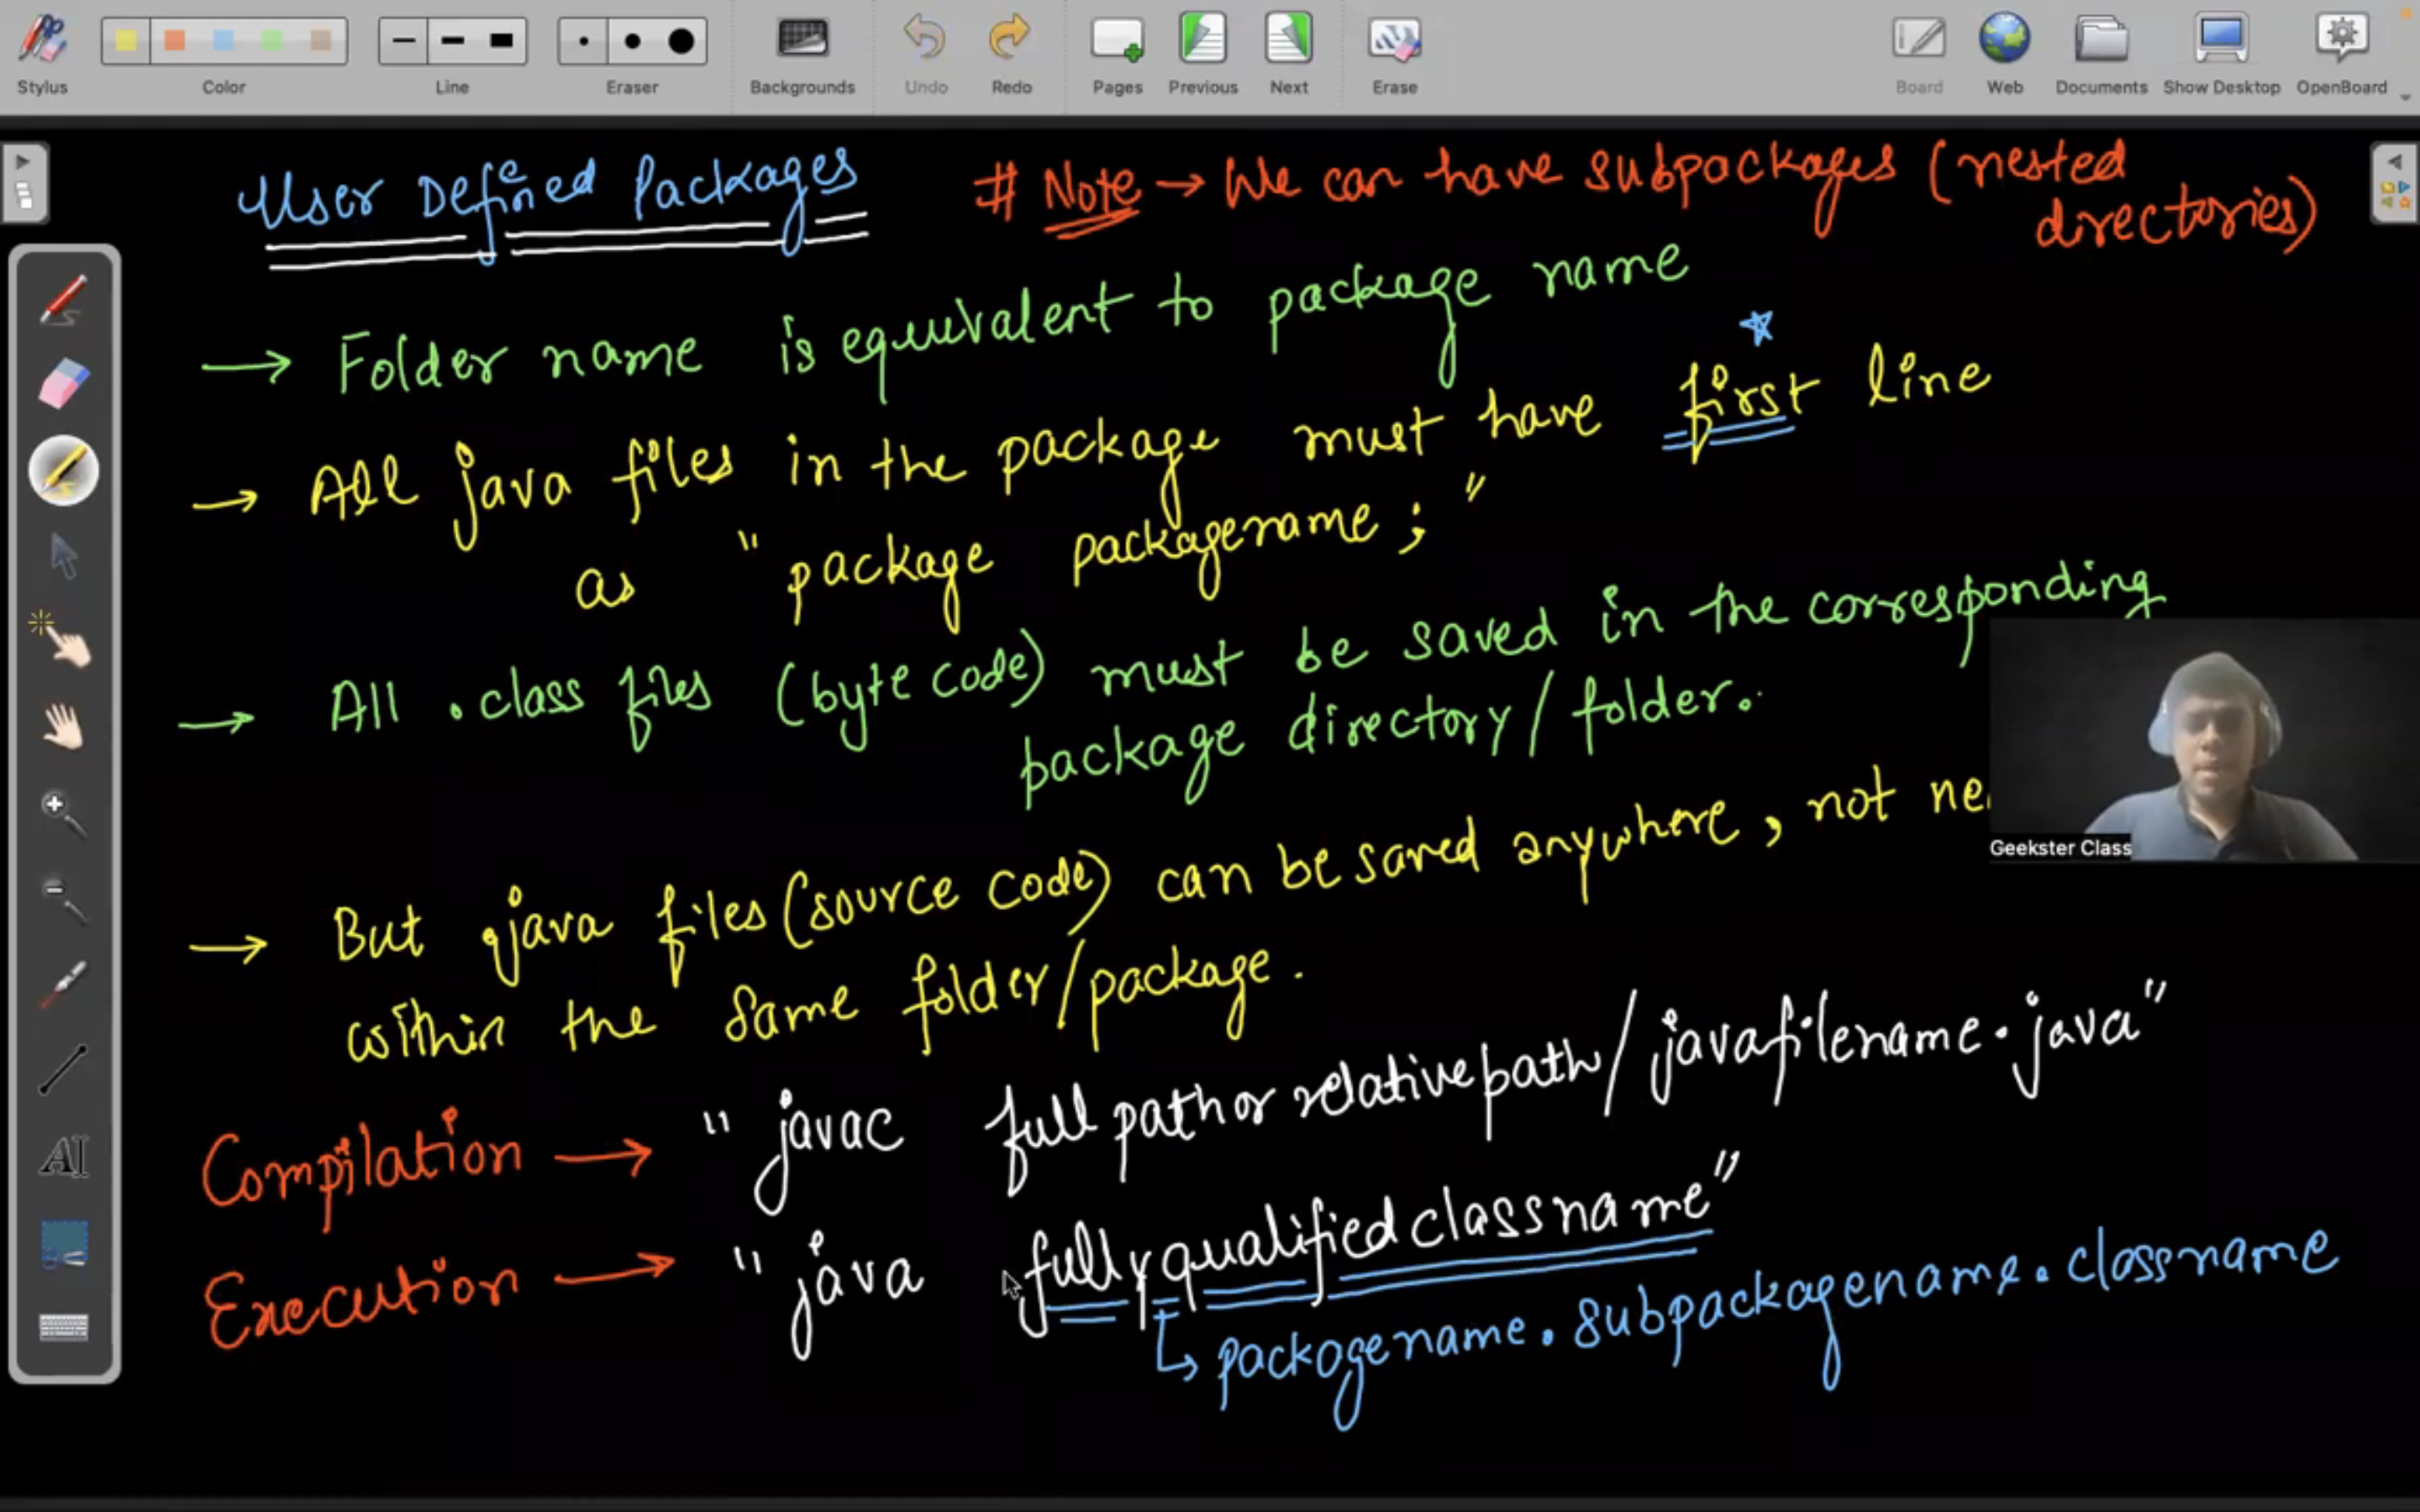 Stylus
Color
Line
Eraser
Backgrounds
Undo
Redo
Pages
Previous
Next
Erase
Board
Web
Documents
Show Desktop
OpenBoard
User Defined Packages
# Note → We can have subpackages (nested
directories)
→ Folder name is equivalent to package name
→ All java files in the package must have first line
as "package packagename;"
→ All .class files (byte code) must be saved in the corresponding
package directory/folder.
→ But java files (source code) can be saved anywhere, not
within the same folder/package.
Compilation → "javac full path or relative path/javafilename.java"
Execution → "java fully qualified class name"
↳ packagename.subpackagename.classname
AI
Geekster Class